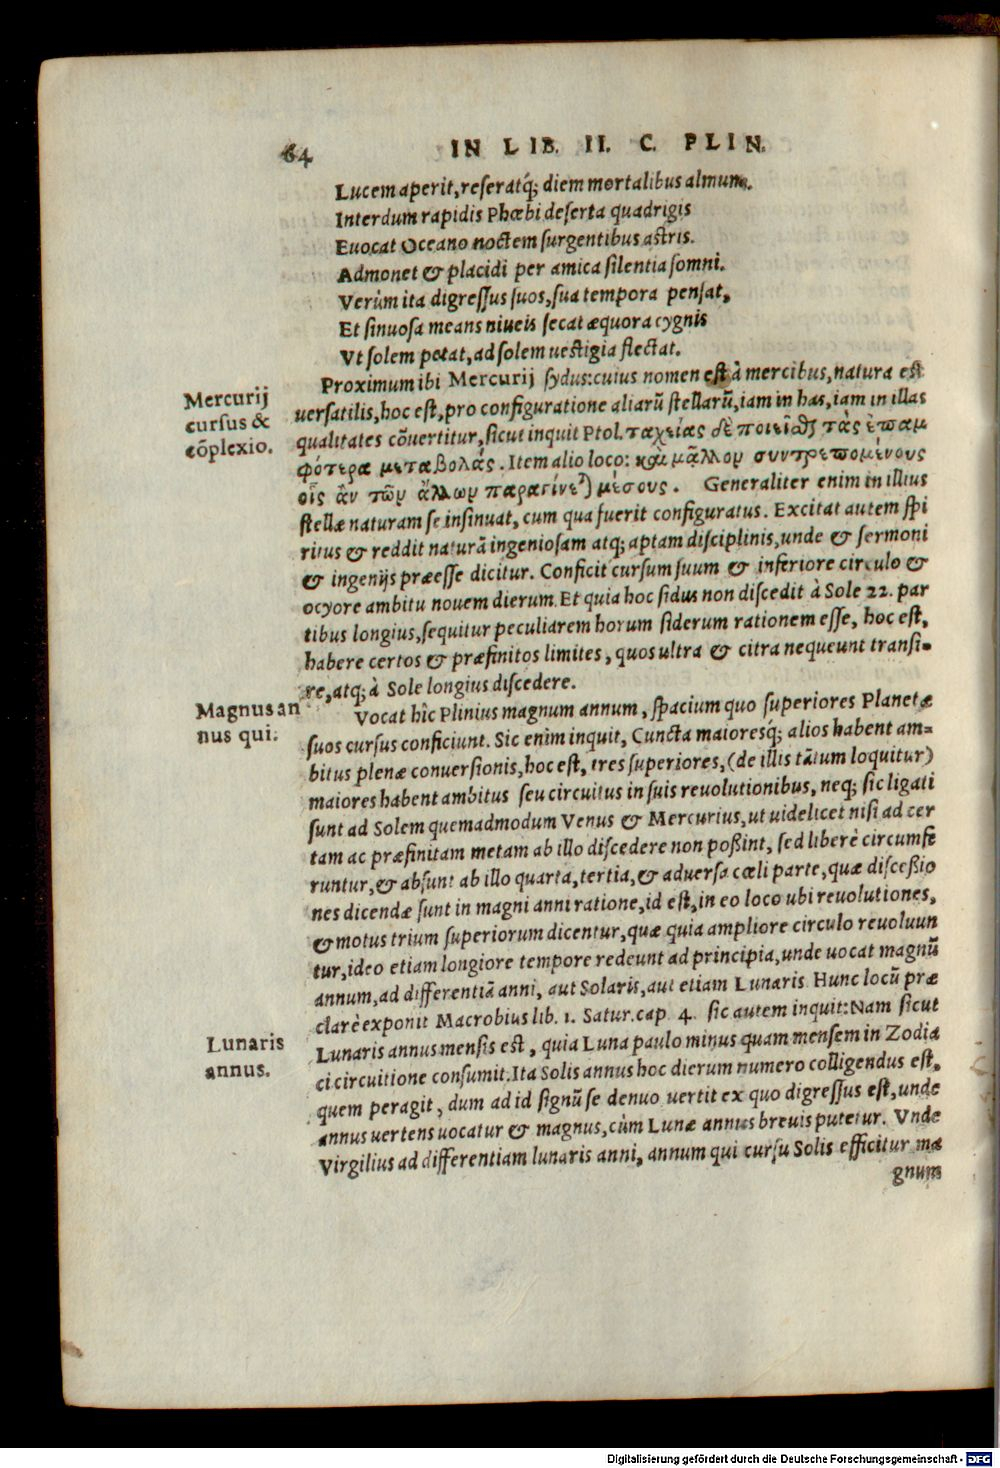 64
IN LIB. II. C. PLIN.
Lucem aperit, reseratq́; diem mortalibus almum.
Interdum rapidis Phœbi deserta quadrigis
Euocat Oceano noctem surgentibus astris.
Admonet & placidi per amica silentia somni.
Verùm ita digressus suos, sua tempora pensat,
Et sinuosa means niueis secat æquora cygnis
Vt solem petat, ad solem uestigia flectat.
Mercurij
cursus &
cõplexio.
Proximum ibi Mercurij sydus: cuius nomen est à mercibus, natura est
uersatilis, hoc est, pro configuratione aliarũ stellarũ, iam in has, iam in illas
qualitates cõuertitur, sicut inquit Ptol. ταχείας δὲ ποιεῖϑ τὰς ἐπαμ
φότερα μεταβολάς. Item alio loco: καὶ μᾶλλον συντρεπομένους
οἷς ἂν τῶν ἄλλων παραγίνε) μέσους. Generaliter enim in illius
stellæ naturam se insinuat, cum qua fuerit configuratus. Excitat autem spi
ritus & reddit naturã ingeniosam atq; aptam disciplinis, unde & sermoni
& ingenijs præesse dicitur. Conficit cursum suum & inferiore circulo &
ocyore ambitu nouem dierum. Et quia hoc sidus non discedit à Sole 22. par
tibus longius, sequitur peculiarem horum siderum rationem esse, hoc est,
habere certos & præfinitos limites, quos ultra & citra nequeunt transi-
re, atq; à Sole longius discedere.
Magnus an
nus qui.
Vocat hîc Plinius magnum annum, spacium quo superiores Planetæ
suos cursus conficiunt. Sic enim inquit, Cuncta maioresq́; alios habent am-
bitus plenæ conuersionis, hoc est, tres superiores, (de illis tãtum loquitur)
maiores habent ambitus seu circuitus in suis reuolutionibus, neq; sic ligati
sunt ad Solem quemadmodum Venus & Mercurius, ut uidelicet nisi ad cer
tam ac præfinitam metam ab illo discedere non poßint, sed liberè circumfe
runtur, & absunt ab illo quarta, tertia, & aduersa cœli parte, quæ disceßio
nes dicendæ sunt in magni anni ratione, id est, in eo loco ubi reuolutiones,
& motus trium superiorum dicentur, quæ quia ampliore circulo reuoluun
tur, ideo etiam longiore tempore redeunt ad principia, unde uocat magnũ
annum, ad differentiã anni, aut Solaris, aut etiam Lunaris. Hunc locũ præ
clarè exponit Macrobius lib. 1. Satur. cap. 4. sic autem inquit: Nam sicut
Lunaris
annus.
Lunaris annus mensis est, quia Luna paulo minus quam mensem in Zodia
ci circuitione consumit: Ita Solis annus hoc dierum numero colligendus est,
quem peragit, dum ad id signũ se denuo uertit ex quo digressus est, unde
annus uertens uocatur & magnus, cùm Lunæ annus breuis putetur. Vnde
Virgilius ad differentiam lunaris anni, annum qui cursu Solis efficitur ma
gnum
Digitalisierung gefördert durch die Deutsche Forschungsgemeinschaft - DFG